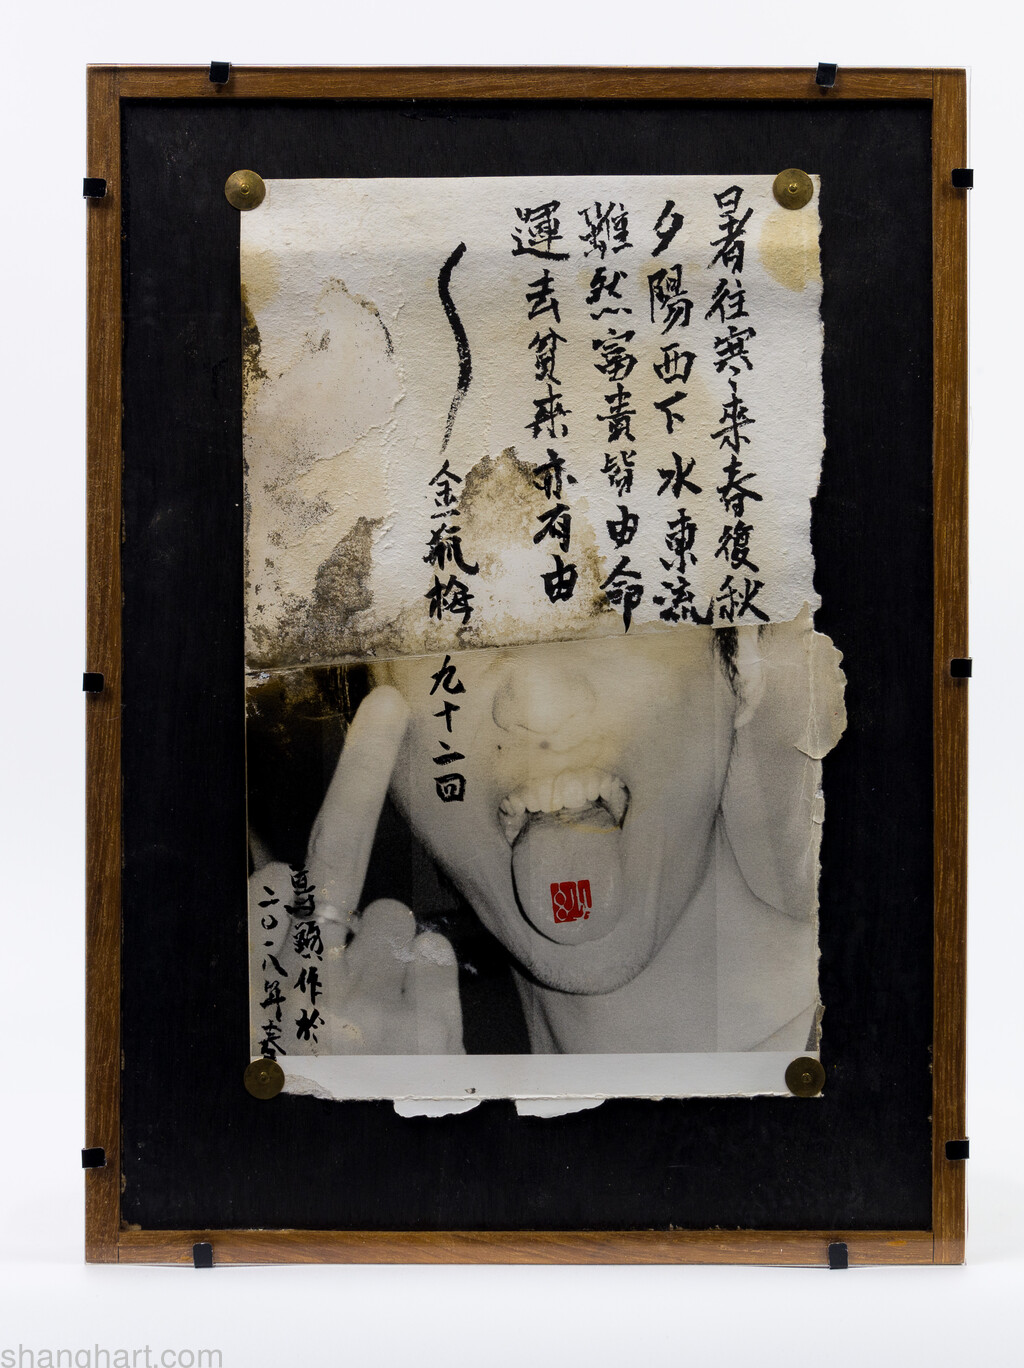 暑往寒來春復秋
夕陽西下水東流
雖然富貴皆由命
運去貧來亦有由
金瓶梅 九十二回
作於
二〇一八年春
shanghart.com